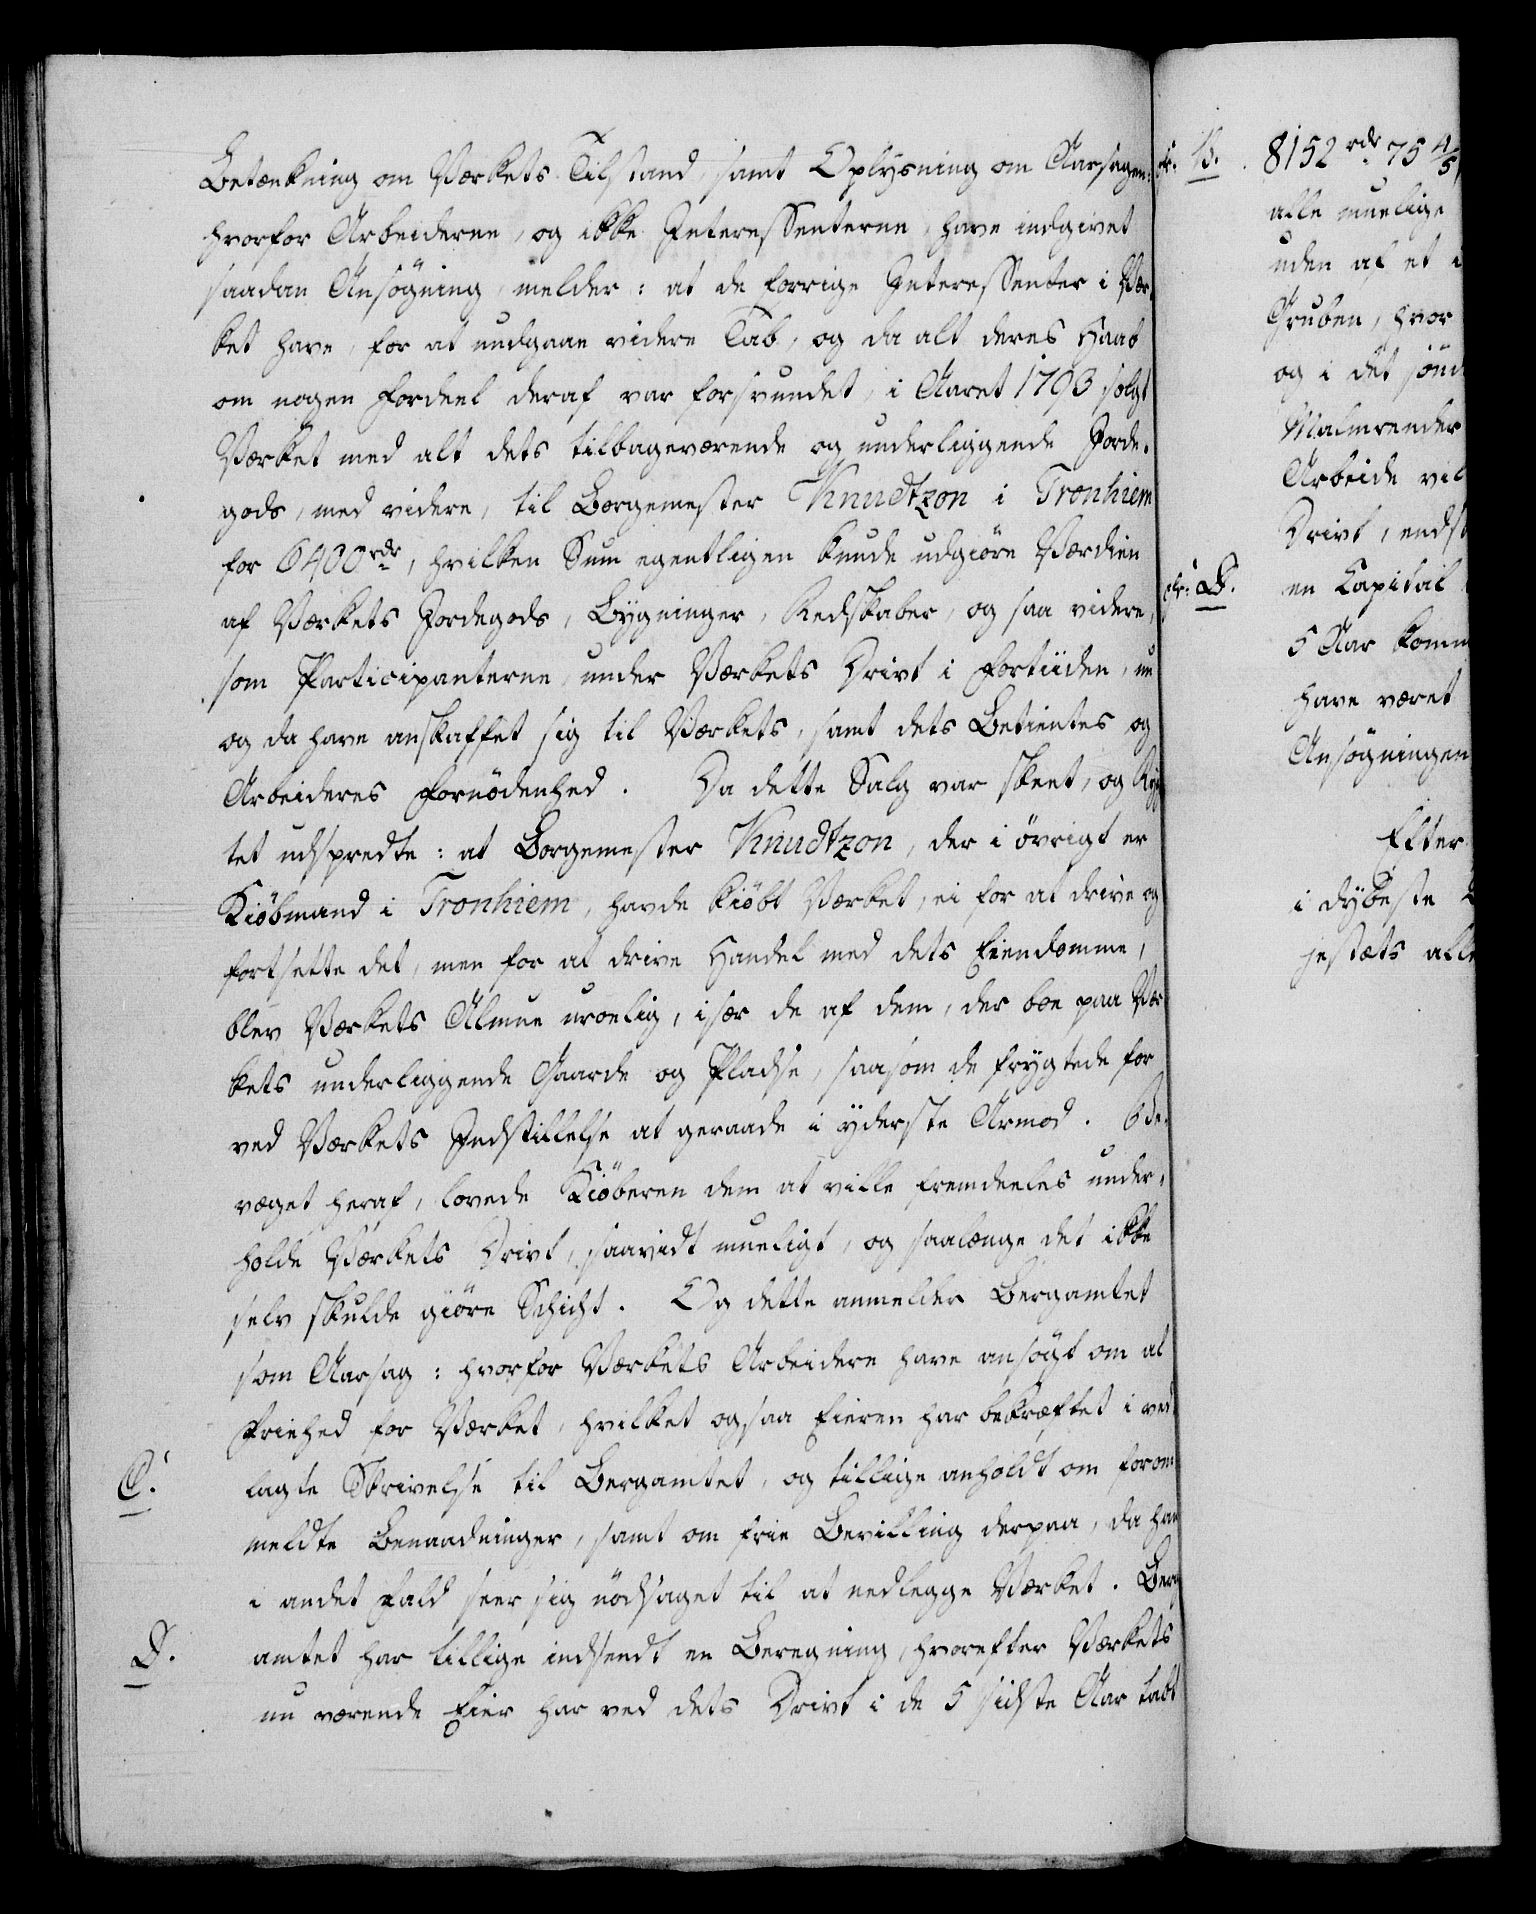 Betænkning om Værkets Tilstand, samt Oplysning om Aarsagen:
hvorfor Arbeiderne, og ikke Interessenterne, have indgivet
saadan Ansøgning, melder: at de forrige Interessenter i Vær-
ket have, for at undgaae videre Tab, og da alt deres Haab
om nogen Fordeel deraf var forsvundet, i Aaret 1793 solgt
Værket med alt dets tilbageværende og underliggende Jorde-
gods, med videre, til Borgemester Knudtzon i Tronhiem
for 6400 rdr, hvilken Sum egentligen kunde udgiøre Værdien
af Værkets Jordegods, Bygninger, Redskaber, og saa videre,
som Participanterne, under Værkets Drivt i Fortiiden, nu
og da have anskaffet sig til Værkets, samt dets Betientes og
Arbeideres Fornødenhed. Da dette Salg var skeet, og Ryg
tet udspredte: at Borgemester Knudtzon, der i øvrigt er
Kiøbmand i Tronhiem, havde kiøbt Værket, ei for at drive og
fortsette det, men for at drive Handel med dets Eiendomme,
blev Værkets Almue uroelig, især de af dem, der boe paa Vær
kets underliggende Gaarde og Pladse, saasom de frygtede for
ved Værkets Indstillelse at geraade i yderste Armod. Be-
væget heraf, lovede Kiøberen dem at ville fremdeeles under-
holde Værkets Drivt, saavidt mueligt, og saalænge det ikke
selv skulde giøre Schicht. Og dette anmelder Bergamtet
som Aarsag: hvorfor Værkets Arbeidere have ansøgt om al
Friehed for Værket, hvilket ogsaa Eieren har bekræftet i ved
C. lagte Skrivelse til Bergamtet, og tillige anholdt om forom
meldte Benaadninger, samt om frie Bevilling derpaa, da han
i andet Fald seer sig nødsaget til at nedlegge Værket. Berg
D. amtet har tillige indsendt en Beregning, hvorefter Værkets
nu værende Eier har ved dets Drivt i de 5 sidste Aar tabt
B. 8152 rdr 75 4/5
alle muelige
uden af et
Gruben, hvor
og i det
Malmrender
Arbeide vil
Drivt, endsk
E. en Capital
5 Aar komm
have været
Ansøgningen
Efter
i dybeste
jestæts alle